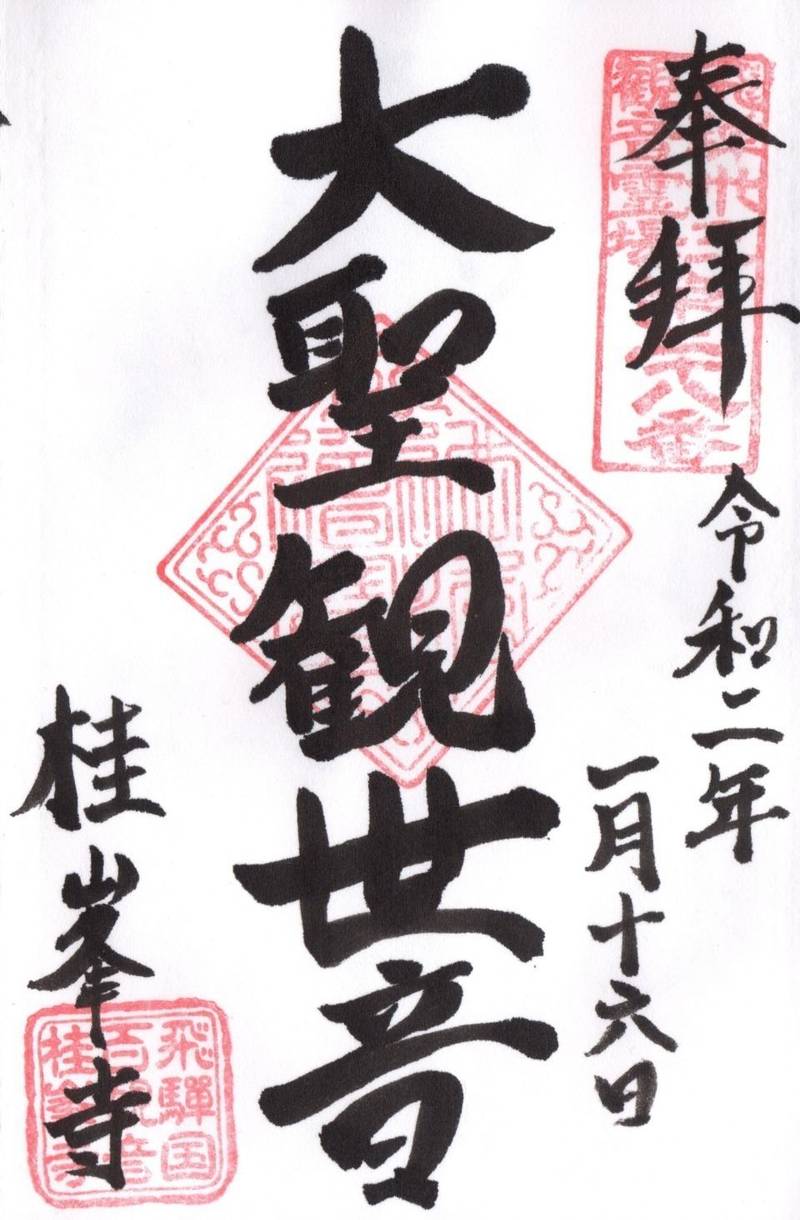 奉拝
令和二年
一月十六日
大聖観世音
桂峯寺
飛騨国
百観音
桂峯寺